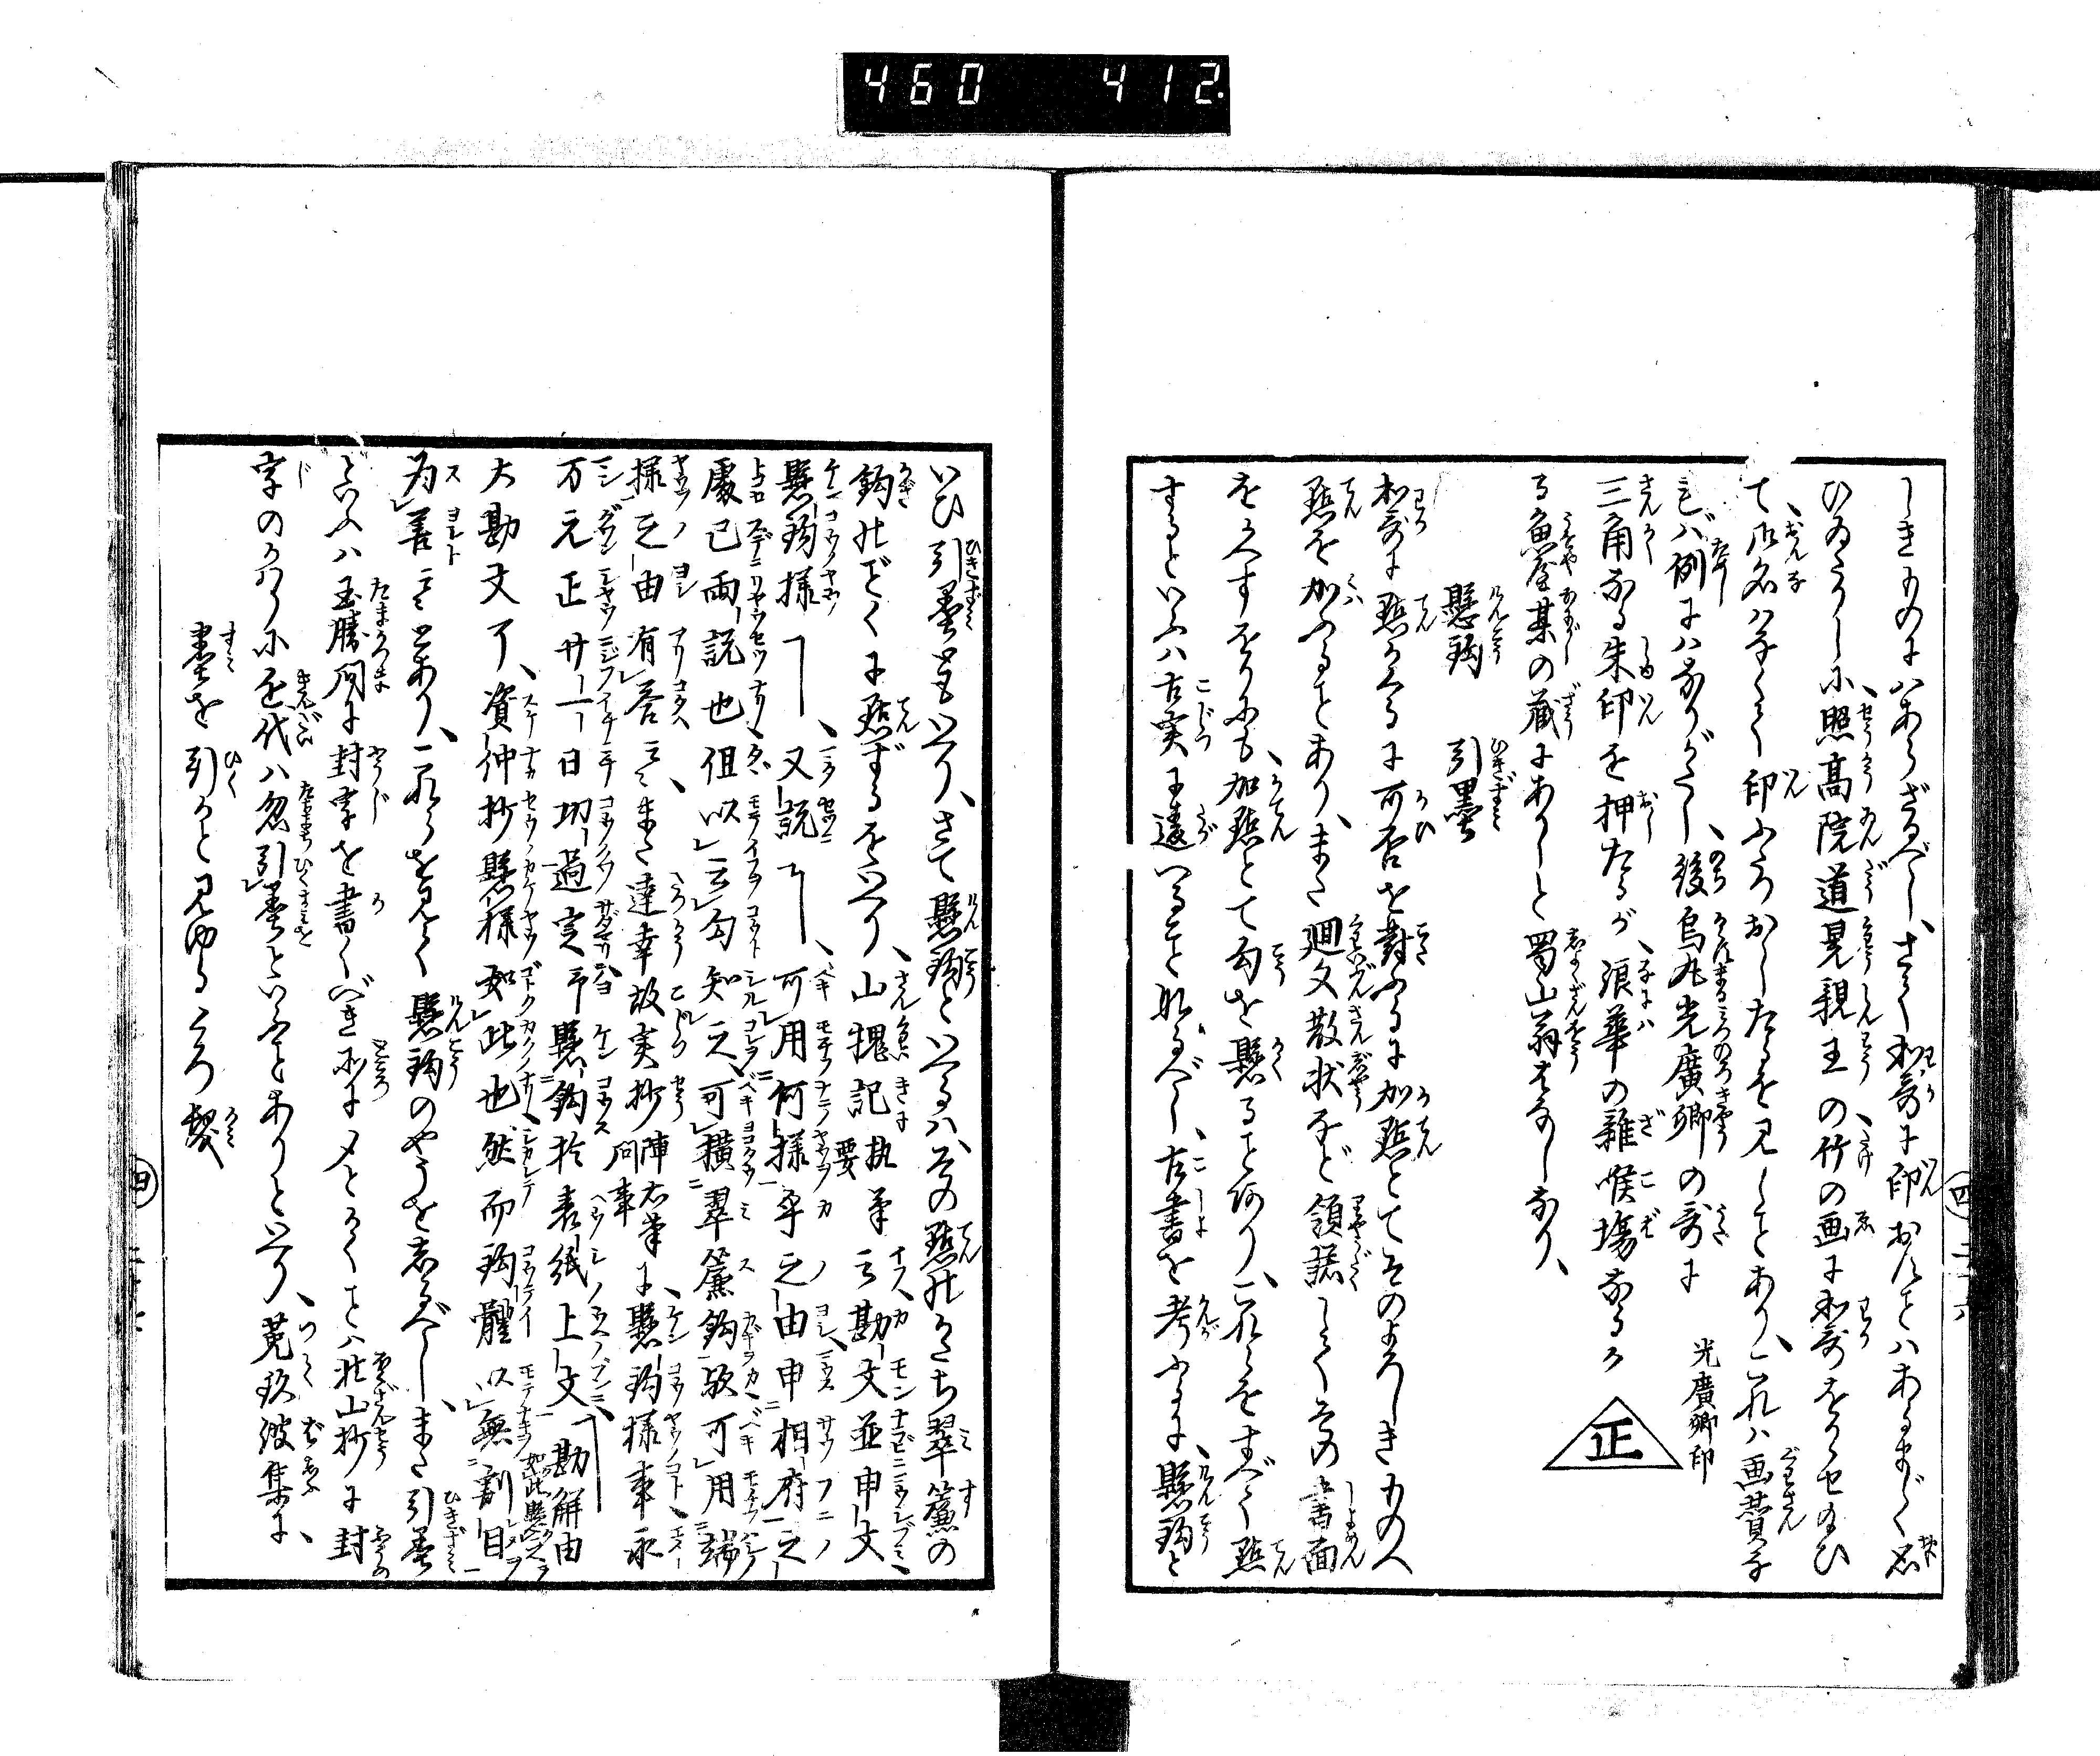 460 412.
しきものにハあらざるべし、さて和哥に印おすことハあるまじく思
ひゐたりしに照高院道晃親王の竹の画に和哥をかゝせ給ひ
て御名ハなくて印ふたつおしたるを見しことあり、これハ画賛な
れば例にハなりがたし、後烏丸光廣卿の哥に
光廣卿印
三角なる朱印を押たるが、浪華の雑喉場なるか
正
る魚屋某の蔵にありしと蜀山翁はなしなり、
懸鈎 引墨
和哥に點かくるに可否を對ふるに加點とてそのよろしきものへ
點を加ふることあり、また廻文散状など領諾してその書面
をかへすをりにも、加點とて勾を懸ることあり、これらをすべて點
するといふハ古実に違へることなるべし、古書を考ふるに、懸鈎と
いひ引墨ともいへり、さて懸鈎といへるハ、その點のかたち翠簾の
鈎のごとくに點ずるをいへり、山槐記 執筆要 云勘文並申文
懸鈎様 、又説 、可用何様乎之由申相府之
處已両説也但以云勾知之可横翠簾鈎歟可用端
様之由有答云々、また達幸故実抄 陣右筆問事 に、懸鈎様事永
万元正廿一日功過定予懸鈎於表紙上文 勘解由
大勘文了、資仲抄懸様如此也然而鈎體以無割目
為善云々とあり、これらを見て懸鈎のやうをしるべし、また引墨
といふハ玉勝間に封字を書くべき所に〆とかくことハ北山抄に封
字のかはりに近代ハ忽引墨といふことありといへり、菟玖波集に、
墨を引かと見ゆるくろ髪